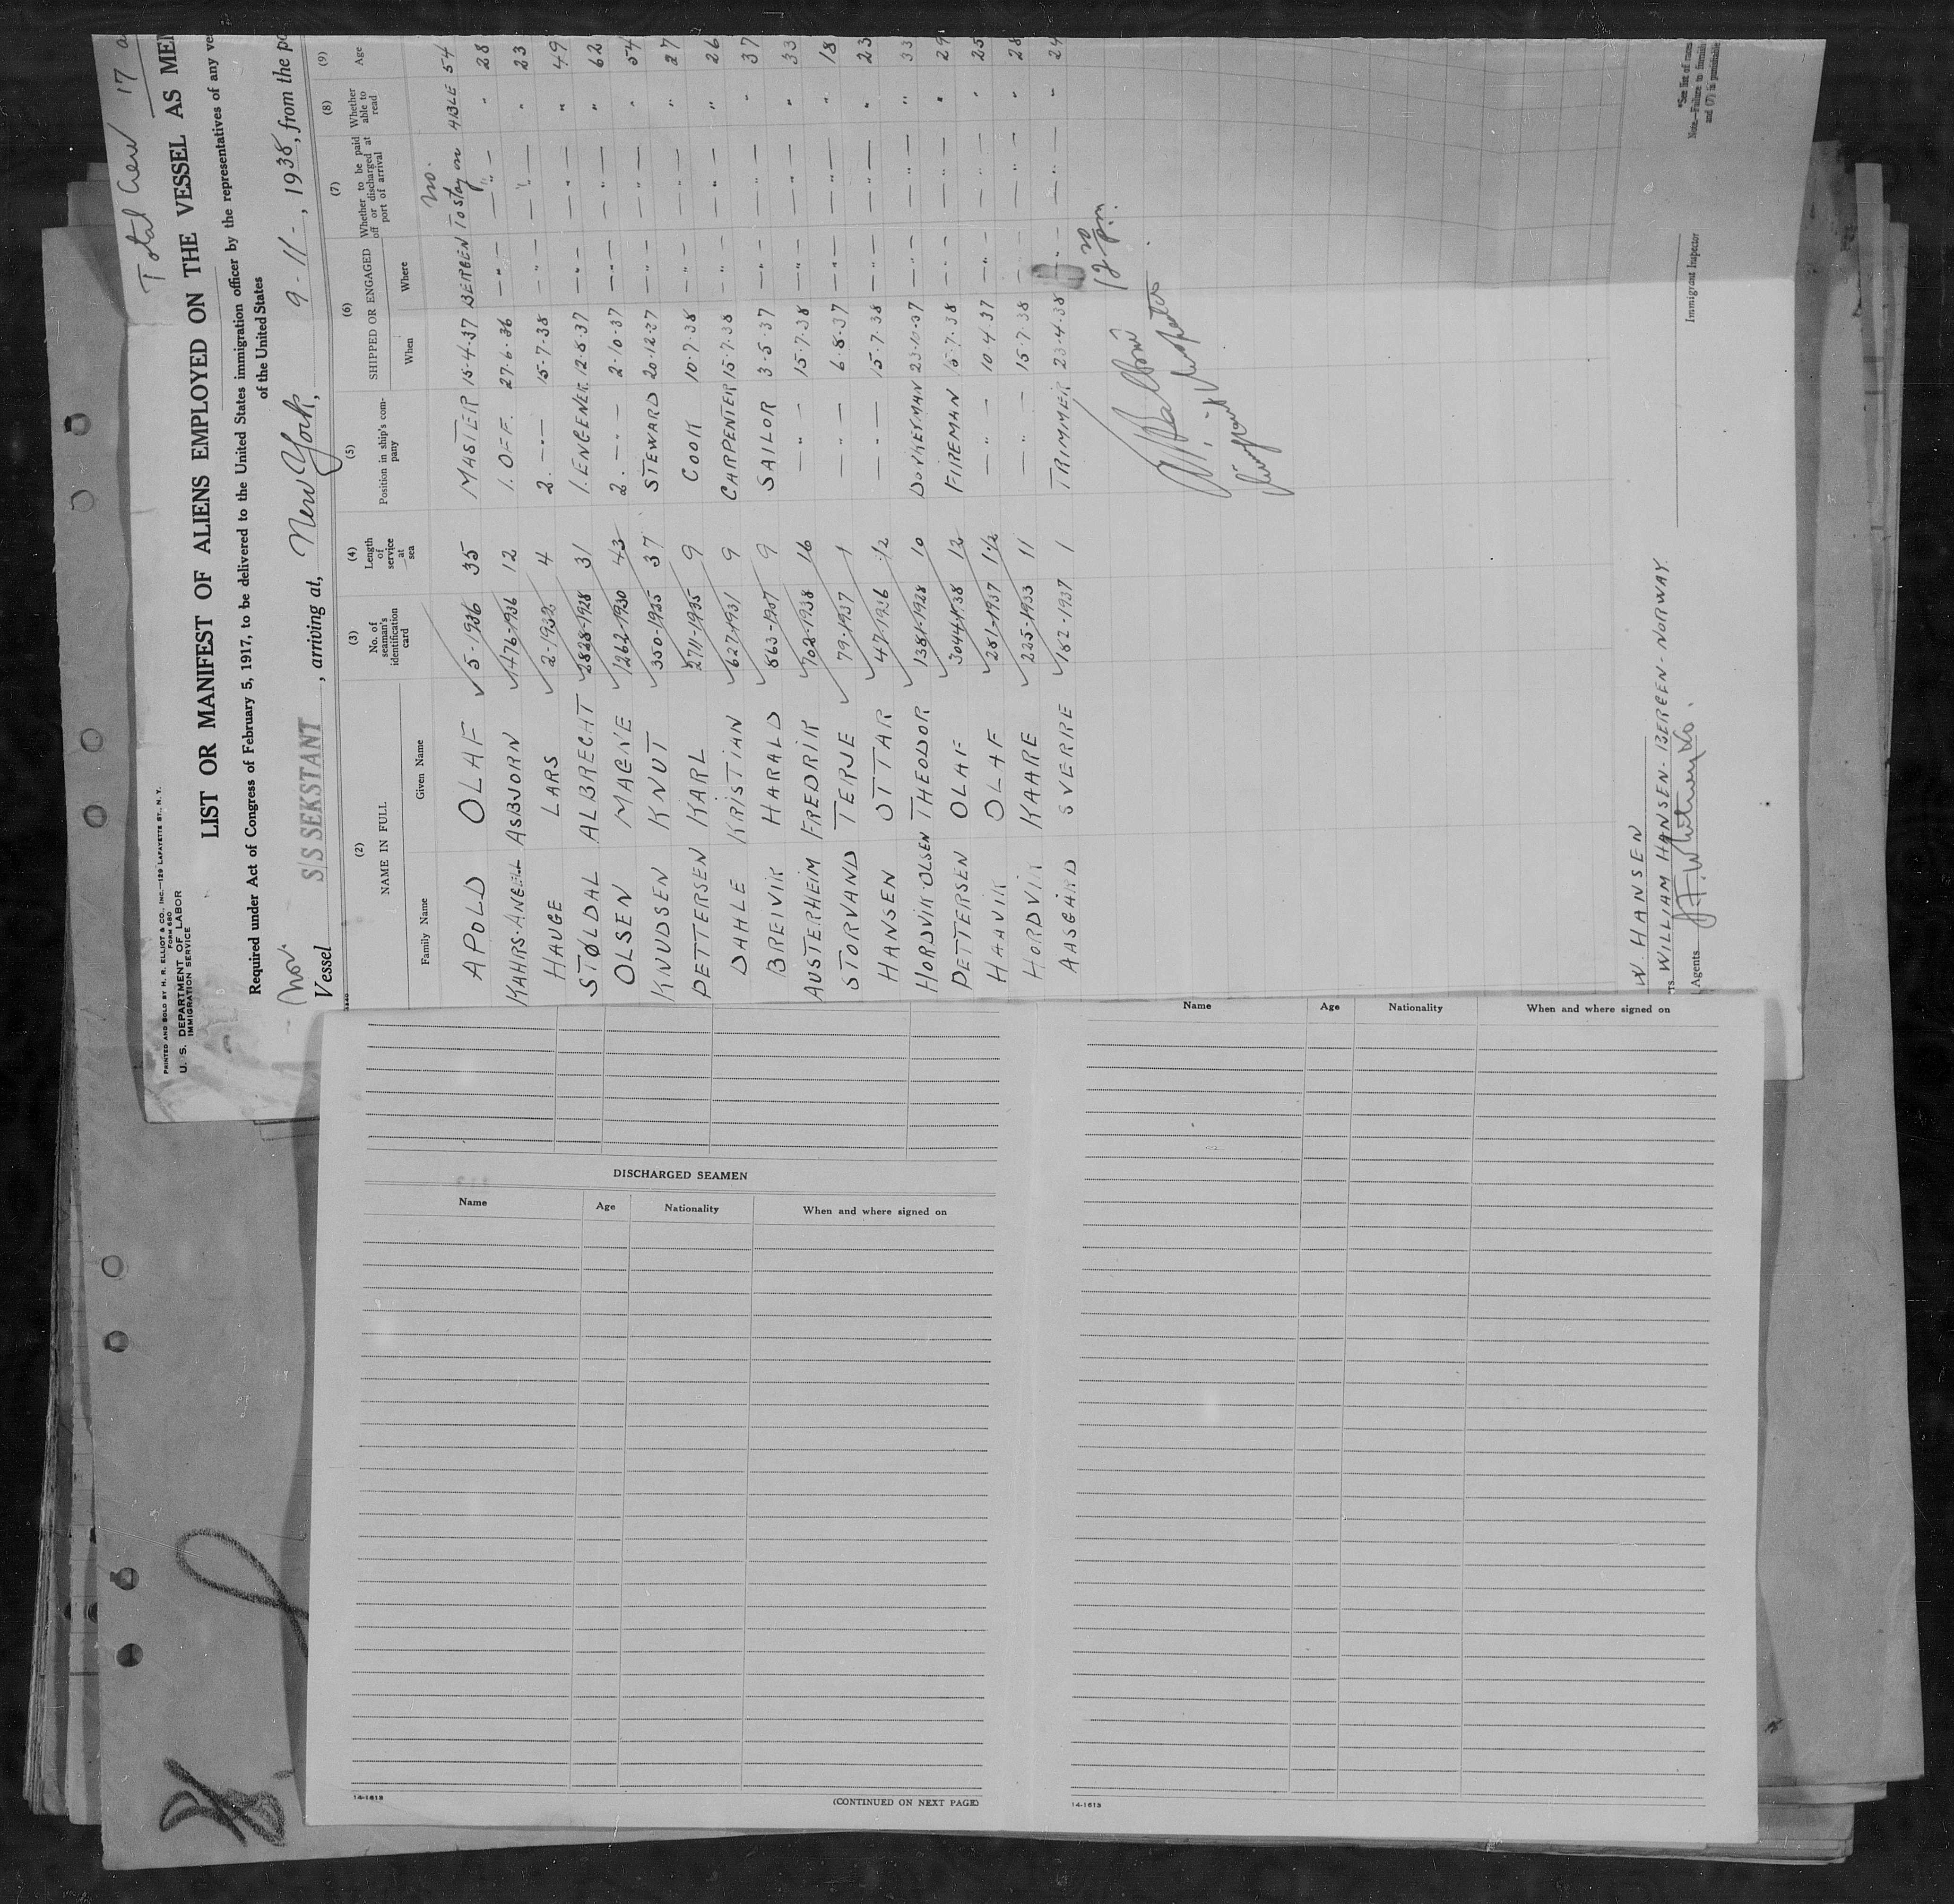 Total Crew 17
PRINTED AND SOLD BY H. R. ELLIOT & CO., INC.—129 LAFAYETTE ST., N. Y.
FORM 680
U. S. DEPARTMENT OF LABOR
IMMIGRATION SERVICE
LIST OR MANIFEST OF ALIENS EMPLOYED ON THE VESSEL AS MEM
Required under Act of Congress of February 5, 1917, to be delivered to the United States immigration officer by the representatives of any ve
of the United States
Nor.
Vessel S/S SEKSTANT, arriving at, New York, 9-11-, 1938, from the po
(2) (3) (4) (5) (6) (7) (8) (9)
NAME IN FULL No. of seaman's identification card Length of service at sea Position in ship's company SHIPPED OR ENGAGED Whether to be paid off or discharged at port of arrival Whether able to read Age
Family Name Given Name When Where
no.
APOLD OLAF 5-1936 35 MASTER 15-4-37 BERGEN To stay on ABLE 54
KAHRS-ANGELL ASBJORN 1476-1936 12 1. OFF. 27-6-36 —"— —"— " 28
HAUGE LARS 2-1932 4 2. —"— 15-7-38 —"— —"— " 23
STØLDAL ALBRECHT 2828-1928 31 1. ENGENER. 12-8-37 —"— —"— " 49
OLSEN MAGNE 1262-1930 43 2. —"— 2-10-37 —"— —"— " 62
KNUDSEN KNUT 350-1935 37 STEWARD 20-12-37 —"— —"— " 54
PETTERSEN KARL 2711-1935 9 COOK 10-7-38 —"— —"— " 27
DAHLE KRISTIAN 627-1931 9 CARPENTER 15-7-38 —"— —"— " 26
BREIVIK HARALD 863-1937 9 SAILOR 3-5-37 —"— —"— " 37
AUSTERHEIM FREDRIK 702-1938 16 —"— 15-7-38 —"— —"— " 33
STORVAND TERJE 79-1937 1 —"— 6-8-37 —"— —"— " 18
HANSEN OTTAR 47-1936 1/2 —"— 15-7-38 —"— —"— " 23
HORDVIK-OLSEN THEODOR 1381-1928 10 DONKEYMAN —"— —"— " 33
PETTERSEN OLAF 3044-1938 12 FIREMAN 15-7-38 —"— —"— " 29
HAAVIK OLAF 281-1937 1 1/2 —"— 10-4-37 —"— —"— " 25
HORDVIK KAARE 225-1933 11 —"— 15-7-38 —"— —"— " 28
AASGÅRD SVERRE 182-1937 1 TRIMMER 23-4-38 —"— —"— " 24
12 20 p.m.
W. HANSEN
WILLIAM HANSEN - BERGEN - NORWAY.
Agents
Immigrant Inspector
*See list of races
Note.—Failure to furnish
and (7) is punishable
DISCHARGED SEAMEN
Name Age Nationality When and where signed on
14-1613
(CONTINUED ON NEXT PAGE)
Name Age Nationality When and where signed on
14-1613